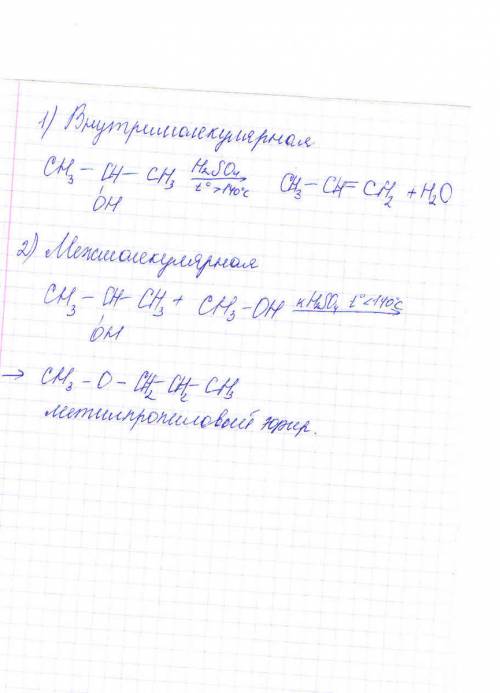 1) Внутримолекулярная
CH₃ – CH – CH₃ H₂SO₄ t° >140°C → CH₃ – CH = CH₂ + H₂O
OH
2) Межмолекулярная
CH₃ – CH – CH₃ + CH₃ – OH к H₂SO₄ t° <140°C →
OH
→ CH₃ – O – CH₂ – CH₂ – CH₃
метилпропиловый эфир.